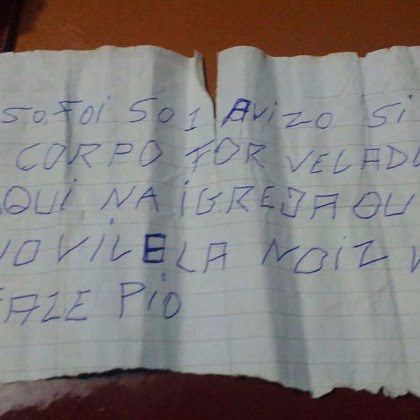 SO.FOI SO 1 AVIZO SI
CORPO FOR VELADO
AQUI NA IGREJA OU
NO VILELA NOIZ V
FAZE PIO